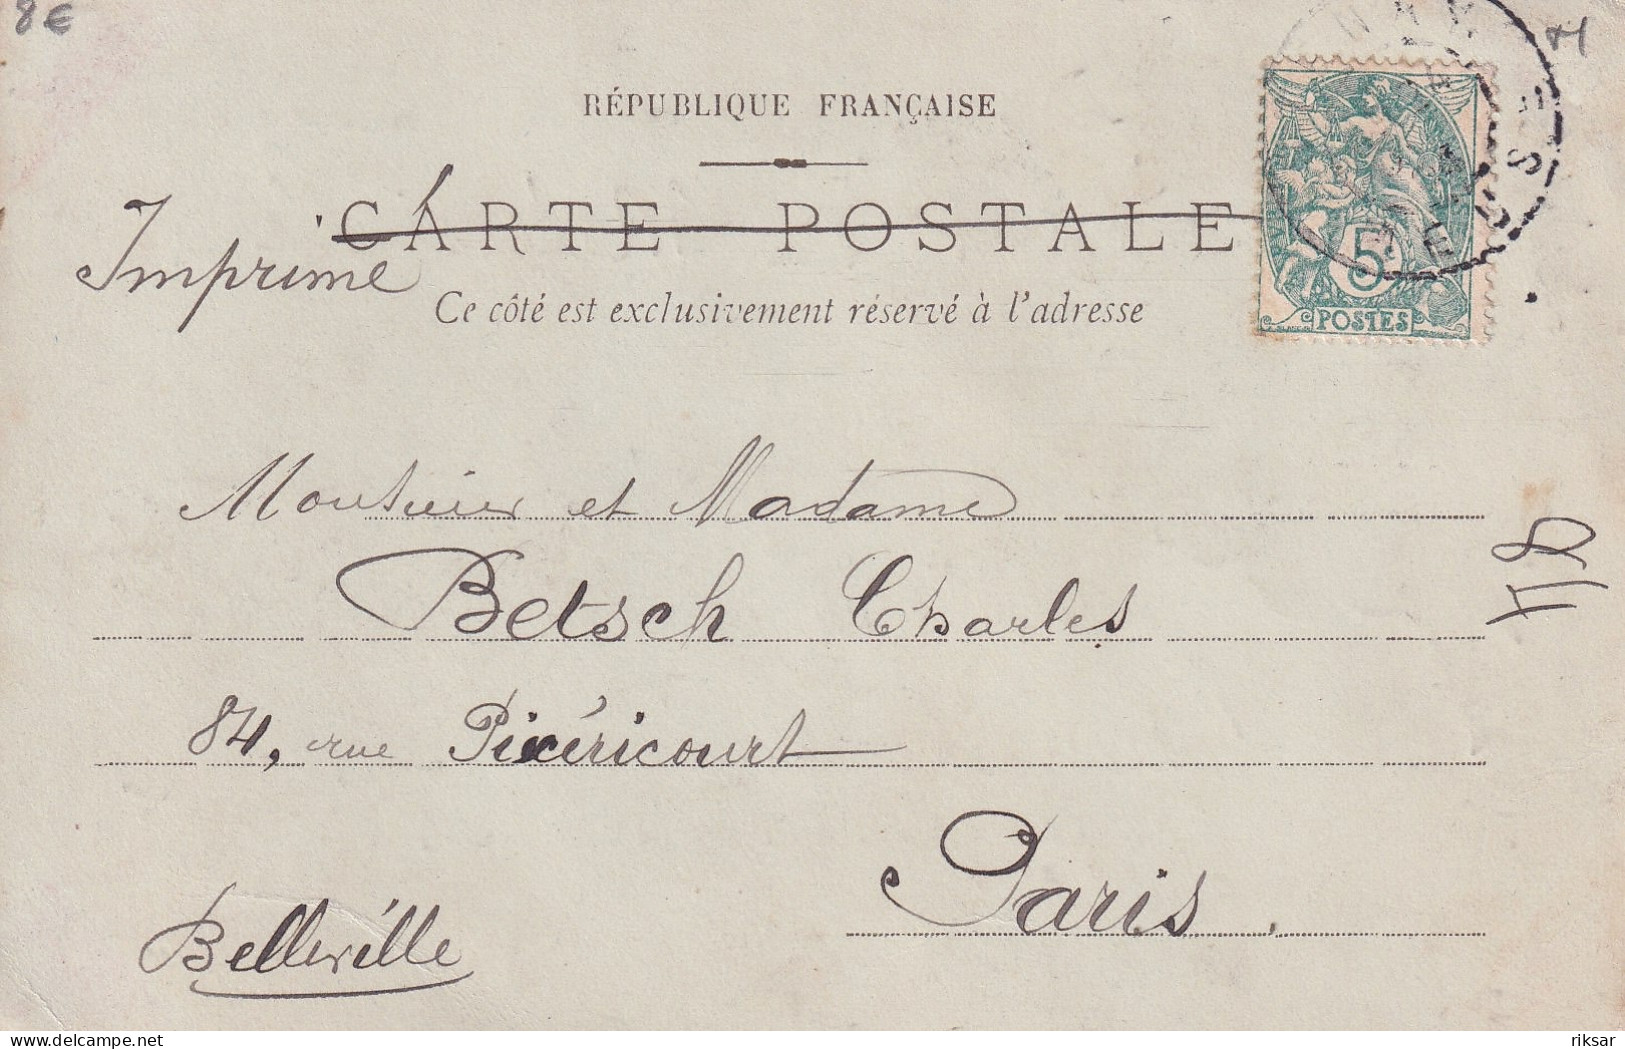 8€
RÉPUBLIQUE FRANÇAISE
CARTE POSTALE
Imprimé
Ce côté est exclusivement réservé à l'adresse
5
POSTES
Monsieur et Madame
Betsch Charles
84, rue Pixéricourt
Paris.
Belleville
delcampe.net
riksar